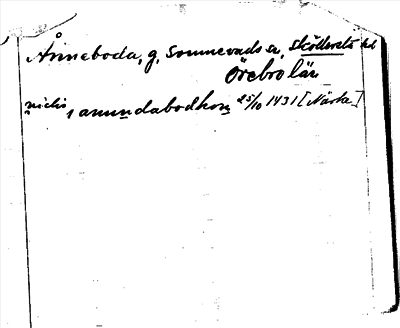 Åsneboda, g, Sannevads sn, Sköllersta hd
Örebro län
nichis, amundabodhom 25/10 1431 [Närke]